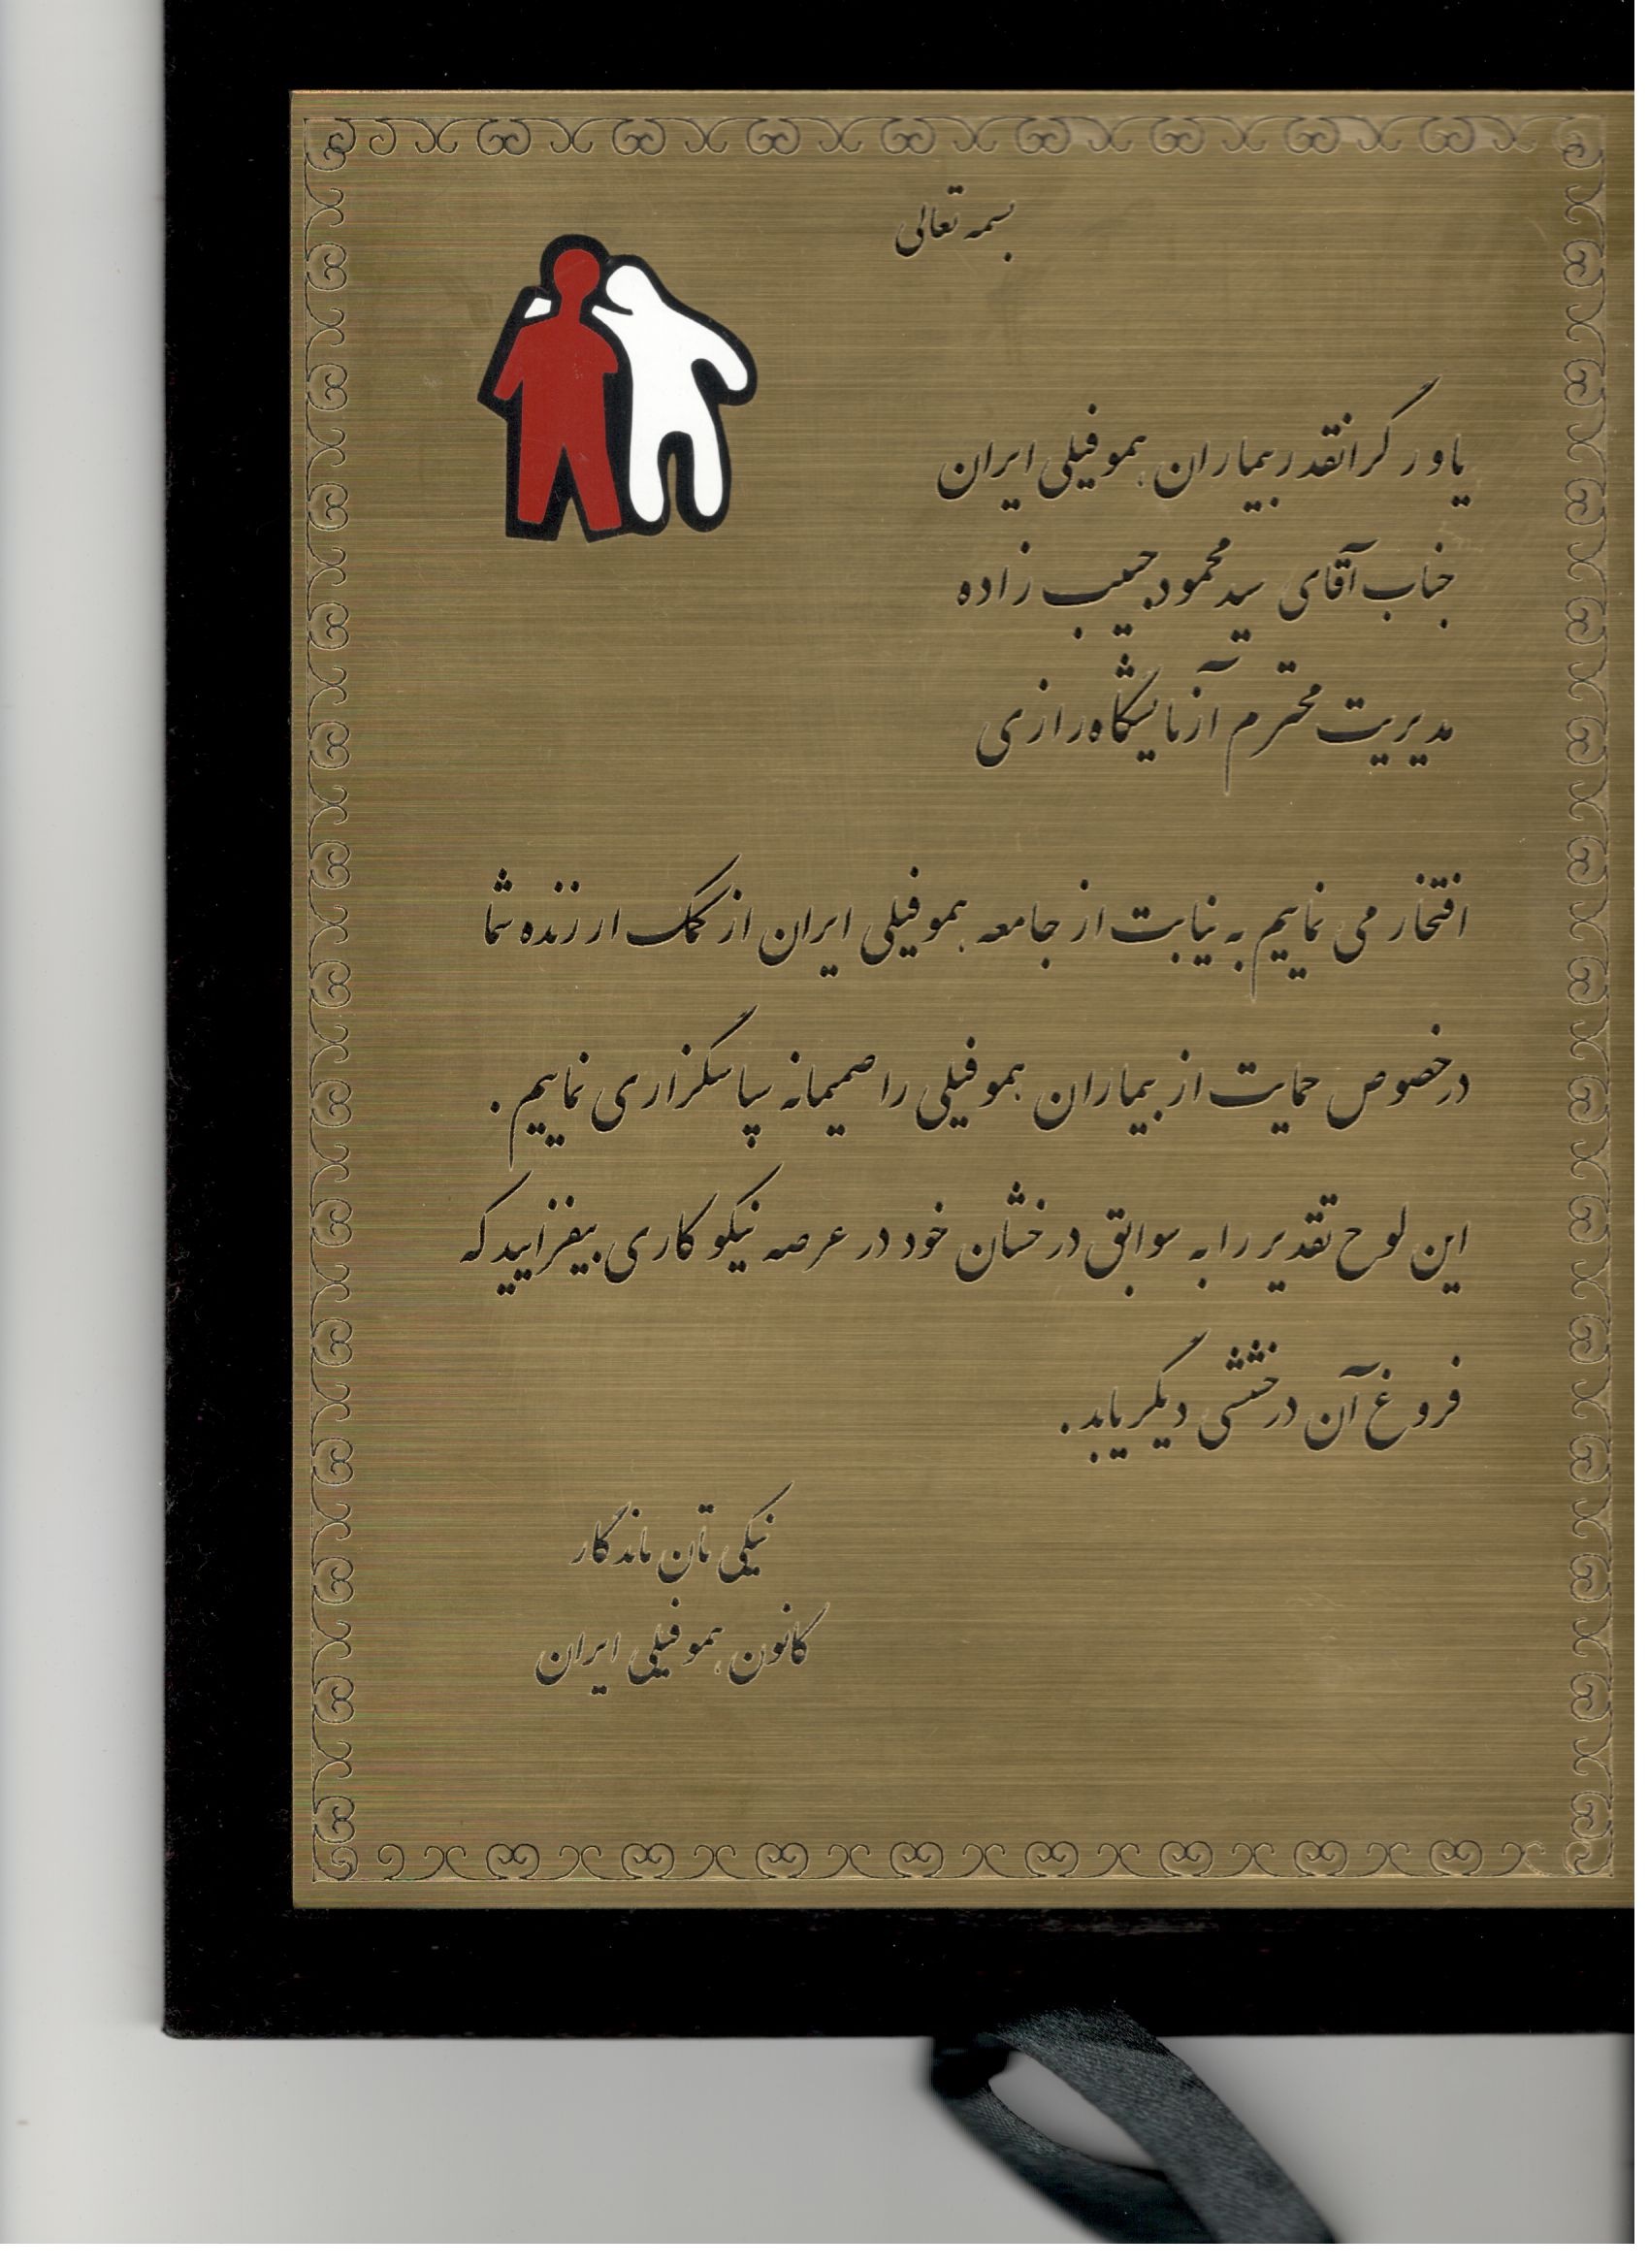 بسمه تعالی
یاور گرانقدر بیماران هموفیلی ایران
جناب آقای سید محمود حبیب زاده
مدیریت محترم آزمایشگاه رازی
افتخار می نماییم به نیابت از جامعه هموفیلی ایران از کمک ارزنده شما
درخصوص حمایت از بیماران هموفیلی را صمیمانه سپاسگزاری نماییم .
این لوح تقدیر را به سوابق درخشان خود در عرصه نیکوکاری بیفزایید که
فروغ آن درخششی دیگر یابد .
نیکی تان ماندگار
کانون هموفیلی ایران